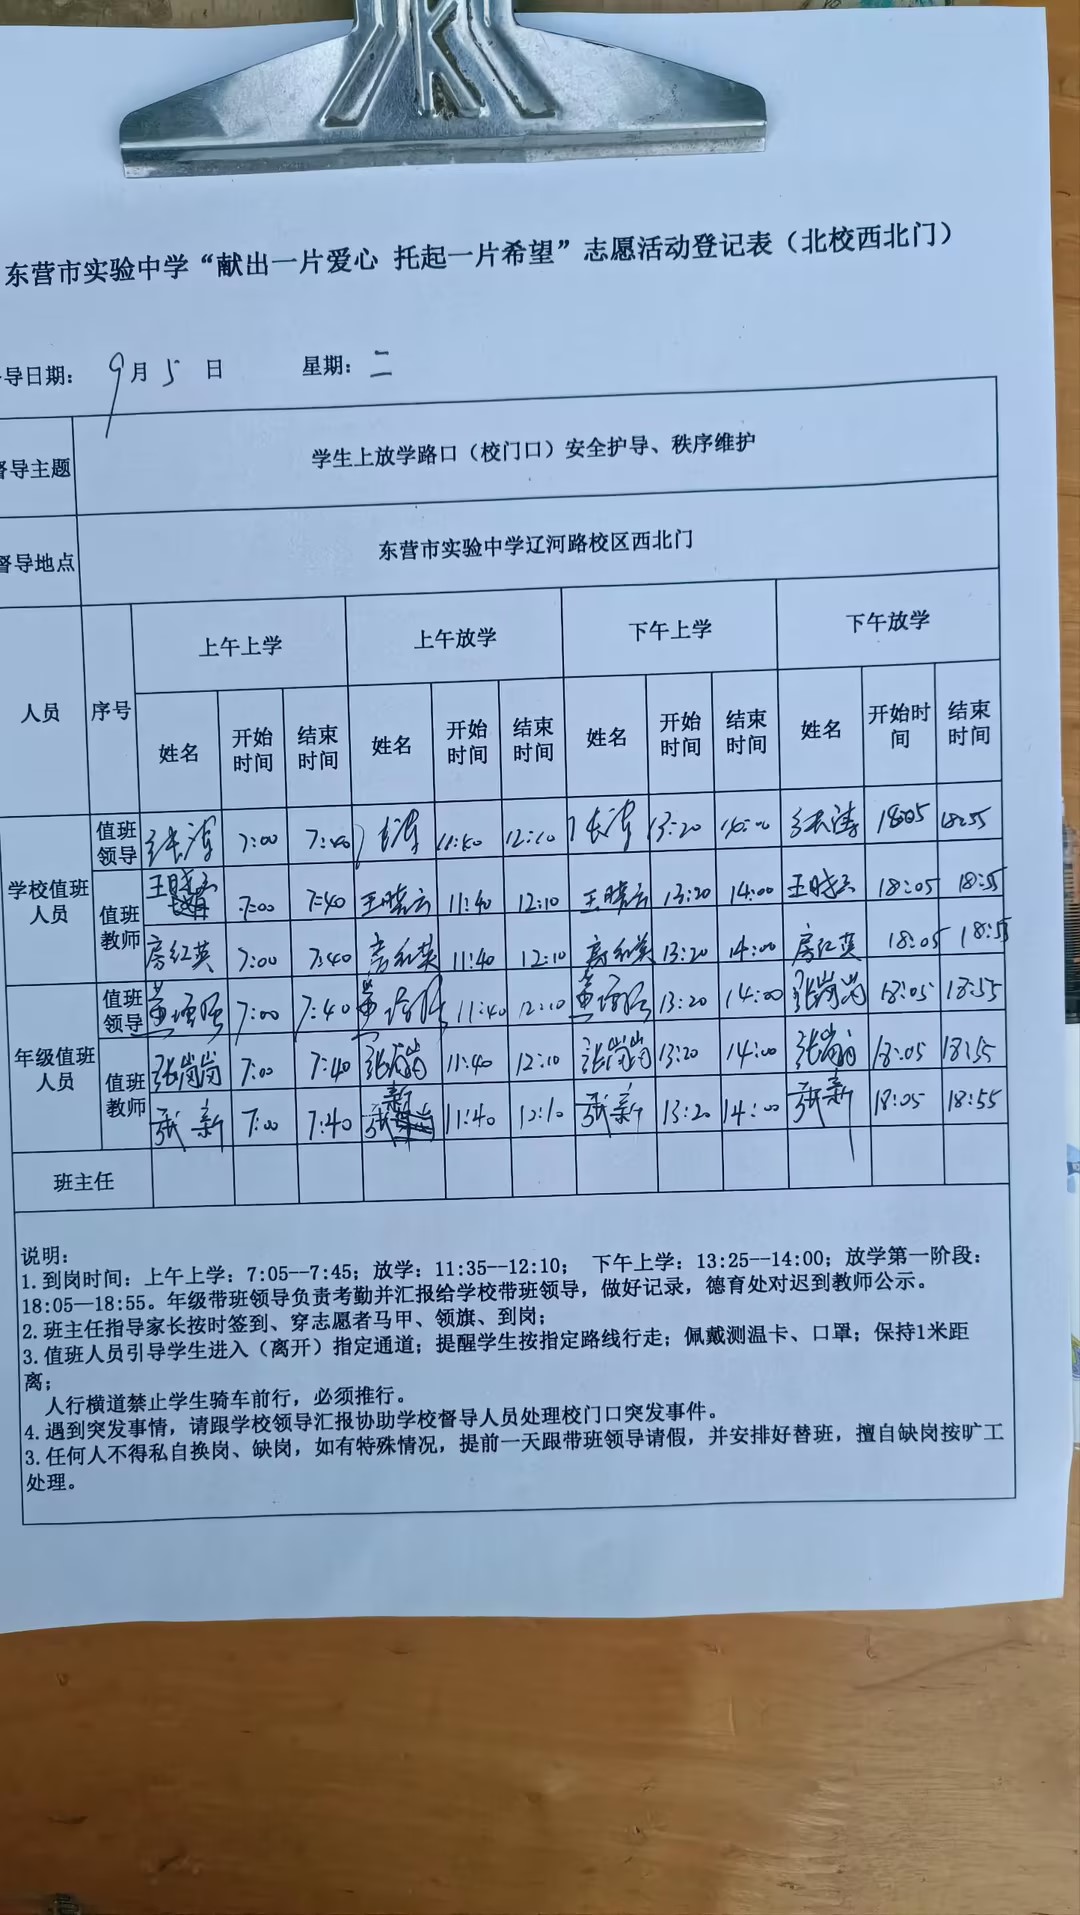 东营市实验中学“献出一片爱心 托起一片希望”志愿活动登记表（北校西北门）
导日期： 9月5日 星期：二
督导主题 学生上放学路口（校门口）安全护导、秩序维护
督导地点 东营市实验中学辽河路校区西北门
人员 序号 上午上学 上午放学 下午上学 下午放学
姓名 开始时间 结束时间 姓名 开始时间 结束时间 姓名 开始时间 结束时间 姓名 开始时间 结束时间
学校值班人员 值班领导 7:00 7:40 11:40 12:10 13:20 14:00 18:05 18:55
值班教师 王晓云 7:00 7:40 王晓云 11:40 12:10 王晓云 13:20 14:00 王晓云 18:05 18:55
房红英 7:00 7:40 房红英 11:40 12:10 房红英 13:20 14:00 房红英 18:05 18:55
年级值班人员 值班领导 7:00 7:40 11:40 12:10 13:20 14:00 张岗岗 18:05 18:55
值班教师 张岗岗 7:00 7:40 张岗岗 11:40 12:10 张岗岗 13:20 14:00 张岗岗 18:05 18:55
张新 7:00 7:40 张新 11:40 12:10 张新 13:20 14:00 张新 18:05 18:55
班主任
说明：
1.到岗时间：上午上学：7:05--7:45；放学：11:35--12:10； 下午上学：13:25--14:00；放学第一阶段：
18:05—18:55。年级带班领导负责考勤并汇报给学校带班领导，做好记录，德育处对迟到教师公示。
2.班主任指导家长按时签到、穿志愿者马甲、领旗、到岗；
3.值班人员引导学生进入（离开）指定通道；提醒学生按指定路线行走；佩戴测温卡、口罩；保持1米距
离；
人行横道禁止学生骑车前行，必须推行。
4.遇到突发事情，请跟学校领导汇报协助学校督导人员处理校门口突发事件。
3.任何人不得私自换岗、缺岗，如有特殊情况，提前一天跟带班领导请假，并安排好替班，擅自缺岗按旷工
处理。